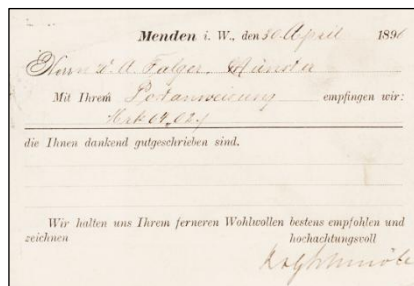 Menden i. W., den 30. April 1896
Herrn A. Folger, Münster
Mit Ihrem Postanweisung empfingen wir:
Mrk 64,02
die Ihnen dankend gutgeschrieben sind.
Wir halten uns Ihrem ferneren Wohlwollen bestens empfohlen und
zeichnen hochachtungsvoll